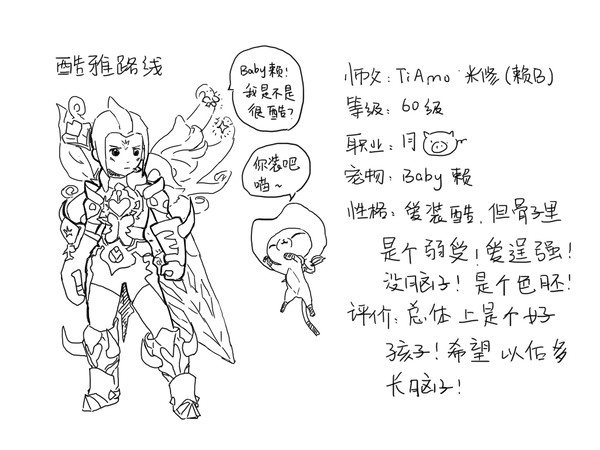 酷雅路线
Baby赖!
我是不是
很酷?
你装吧
喵~
师父: TiAmo 米修(赖B)
等级: 60级
职业: 月
宠物: Baby 赖
性格: 爱装酷.但骨子里
是个弱受!爱逞强!
没脑子!是个色胚!
评价: 总体上是个好
孩子!希望以后多
长脑子!